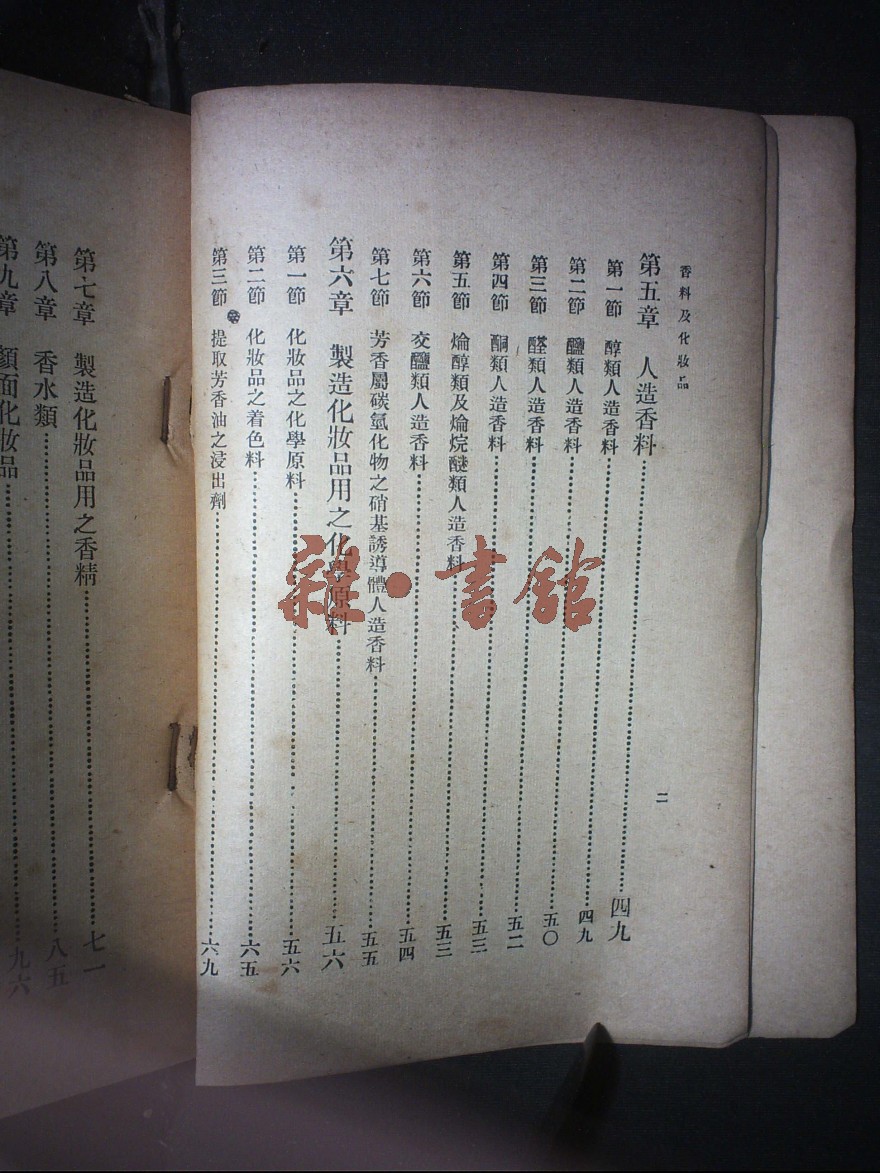 香料及化妝品
二
第五章 人造香料 四九
第一節 醇類人造香料 四九
第二節 鹽類人造香料 五〇
第三節 醛類人造香料 五二
第四節 酮類人造香料 五三
第五節 爚醇類及爚烷醚類人造香料 五三
第六節 交鹽類人造香料 五四
第七節 芳香屬碳氫化物之硝基誘導體人造香料 五五
第六章 製造化妝品用之化學原料 五六
第一節 化妝品之化學原料 五六
第二節 化妝品之着色料 六五
第三節 提取芳香油之浸出劑 六九
第七章 製造化妝品用之香精 七一
第八章 香水類 八五
第九章 顏面化妝品 九六
雜·書館